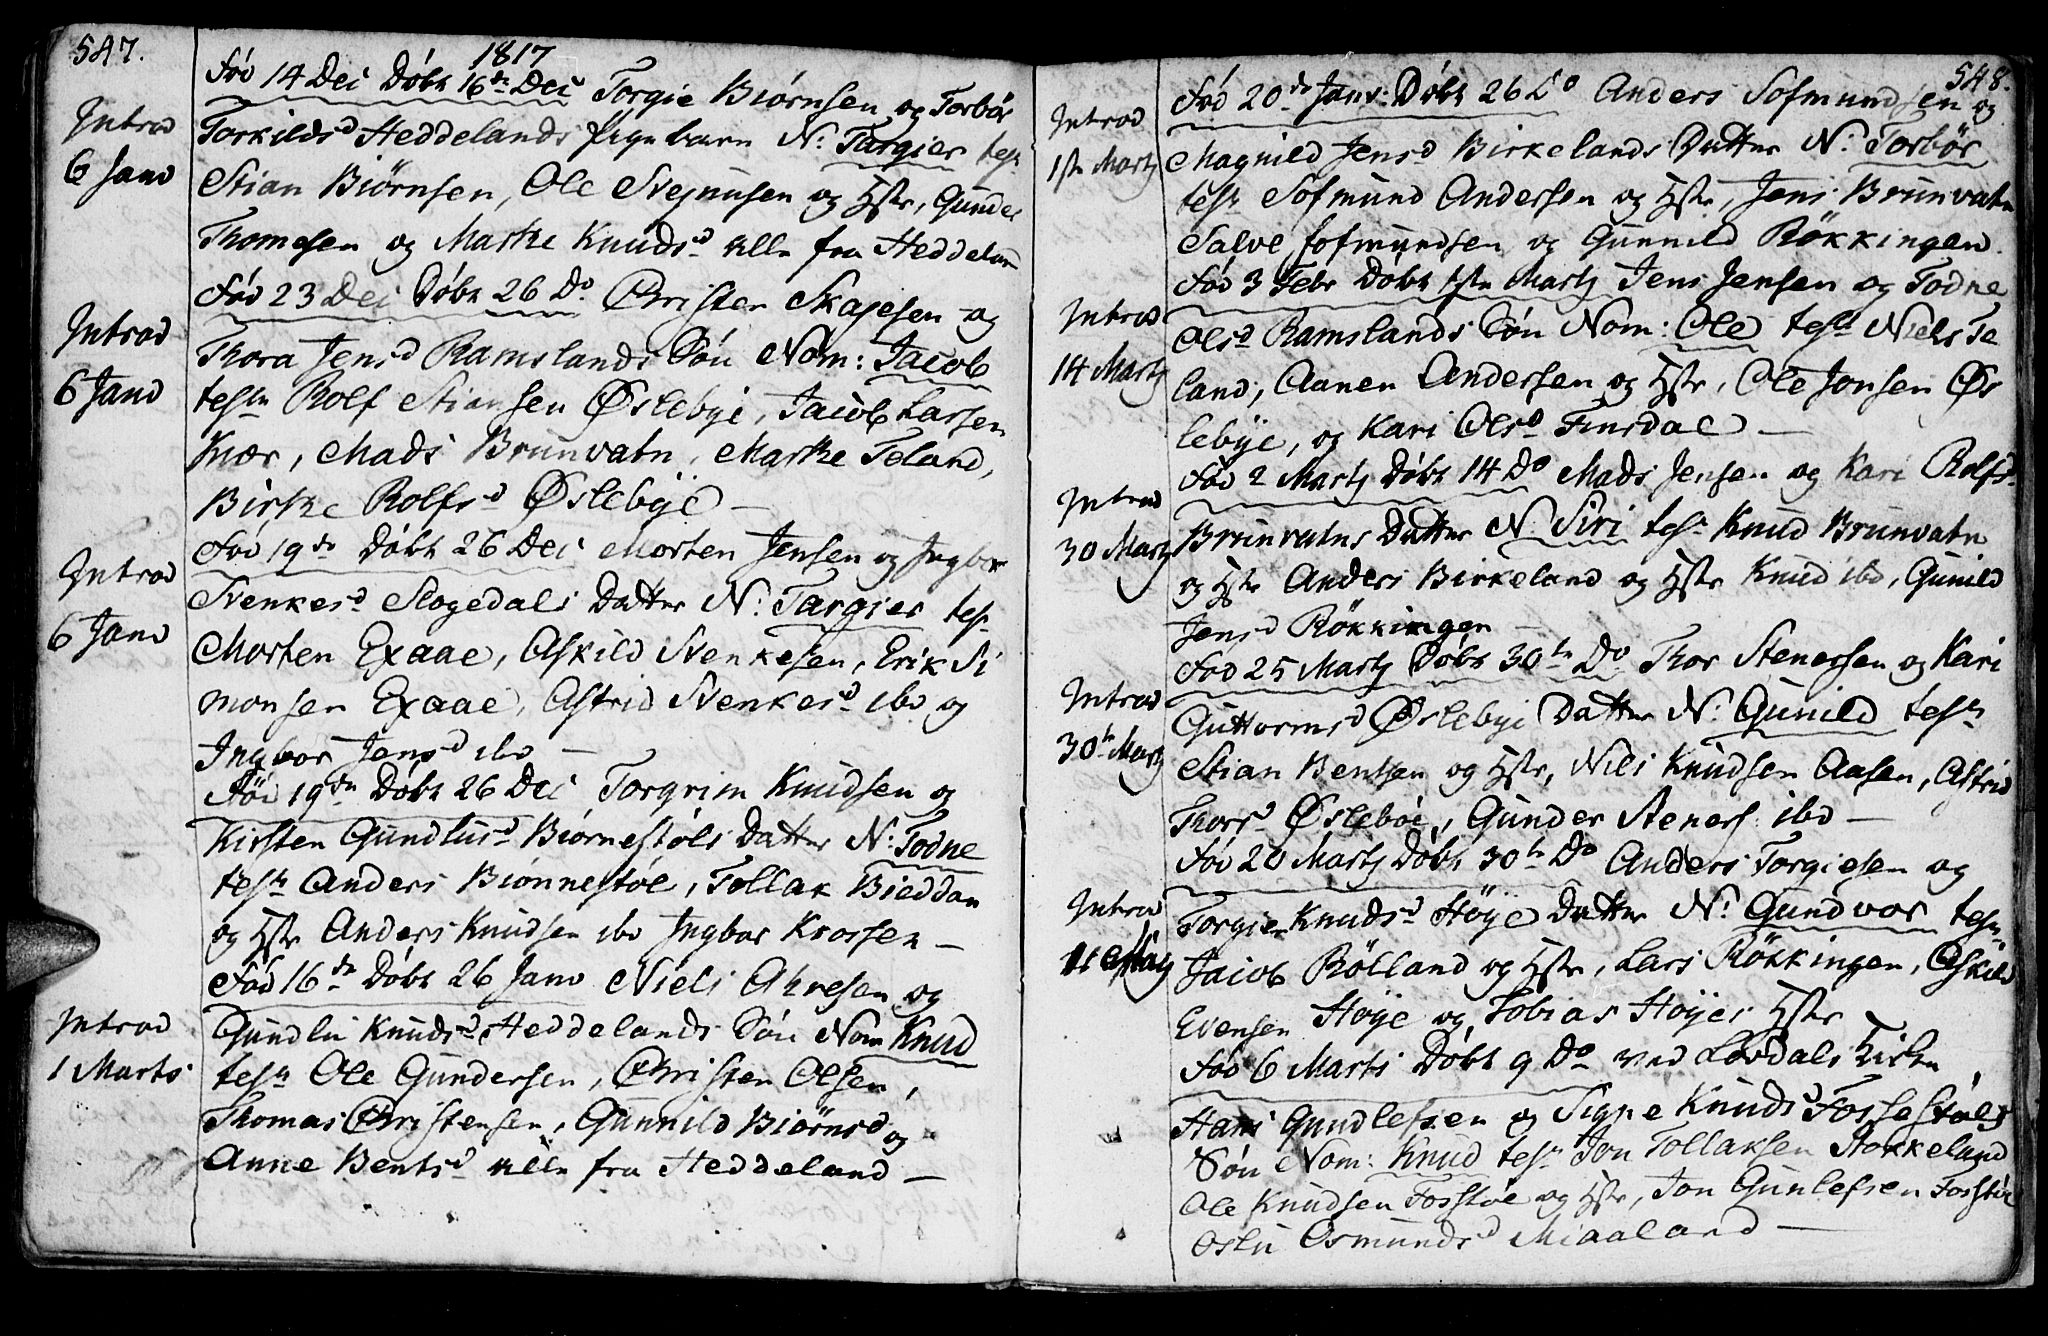 547.
1817
Föd 14 Dec Döbt 16de Dec Torgie Biørnsen og Torbør
Introd
Torkildsd Heddelands Pigebarn N: Targier test
6 Janv
Stian Biørnsen, Ole Svenusen og Hstr, Gunder
Thomesen og Marthe Knudsd alle fra Heddeland
Föd 23 Dec Döbt 26 Do. Christen Skajesen og
Introd
Thora Jensd Ramslands Sön Nom: Jacob
6 Janv
testn Rolf Stiansen Øslebye, Jacob Larsen
Kiær, Mads Brunvatn, Marthe Feland,
Birthe Rolfsd Øslebye —
Föd 19de Döbt 26 Dec Morten Jensen og Ingbor
Introd
Svenkesd Slogedals Datter N: Targier test
6 Janv
Morten Exaae, Askild Svenkesen, Erik Si
monsen Exaae, Astrid Svenkesd ibd og
Ingbor Jensd ibd —
Föd 19de Döbt 26 Dec Torgrim Knudsen og
Kirsten Gundlusd Biørnestöls Datter N: Todne
testn Anders Biønnestöl, Tollak Bieddan
og Hstr Anders Knudsen ibd Ingbor Krossen —
Föd 16de Döbt 26 Janv Niels Ahresen og
Introd
Gundlu Knudsd Heddelands Sön Nom Knud
1 Marts
testn Ole Gundersen, Christen Olsen,
Thomas Christensen, Gunnild Biörnsd og
Anne Bentsd alle fra Heddeland —
548.
Föd 20de Janv: Döbt 26 Do Anders Sofmundsen og
Introd
Magnild Jensd Birkelands Datter N: Torbör
1ste Marts
testn Sofmund Andersen og Hstr, Jens Brunvatn
Salve Sofmundsen og Gunnild Rökkingen
Föd 3 Febr Döbt 1ste Marts Jens Jensen og Todne
Introd
Olsd Ramslands Sön Nom: Ole testn Niels Fe
14 Marts
land, Aanen Andersen og Hstr, Ole Jonsen Øs
lebye, og Kari Olsd Finsdal —
Föd 2 Marts Döbt 14 Do Mads Jensen og Kari Rolfsd
Introd
Brunvatns Datter N. Siri test Knud Brunvatn
30 Marts
og Hstr Anders Birkeland og Hstr Knud ibd, Gunild
Jensd Rökkingen —
Föd 25 Marts Döbt 30te Do Thor Stenersen og Kari
Introd
Guttormsd Øslebye Datter N: Gunild testn
30te Marts
Stian Bentsen og Hstr, Nils Knudsen Aasen, Astrid
Thorsd Øsleböe, Gunder Steners ibd —
Föd 20 Marts Döbt 30te Do Anders Torgiesen og
Introd
Torgier Knudsd Höye Datter N: Gundvor testn
11 May
Jacob Rölland og Hstr, Lars Rökkingen, Askild
Evensen Höye og Tobias Höyes Hstr
Föd 6 Marts Döbt 9 Do ved Lövdals Kirke
Hans Gundlefsen og Signe Knudsd Fossestöls
Sön Nom: Knud testn Jon Tollaksen Stokkeland
Ole Knudsen Fosstöl og Hstr, Jon Gunlefsen Fosstöl
Oslu Osmundsd Miaaland —